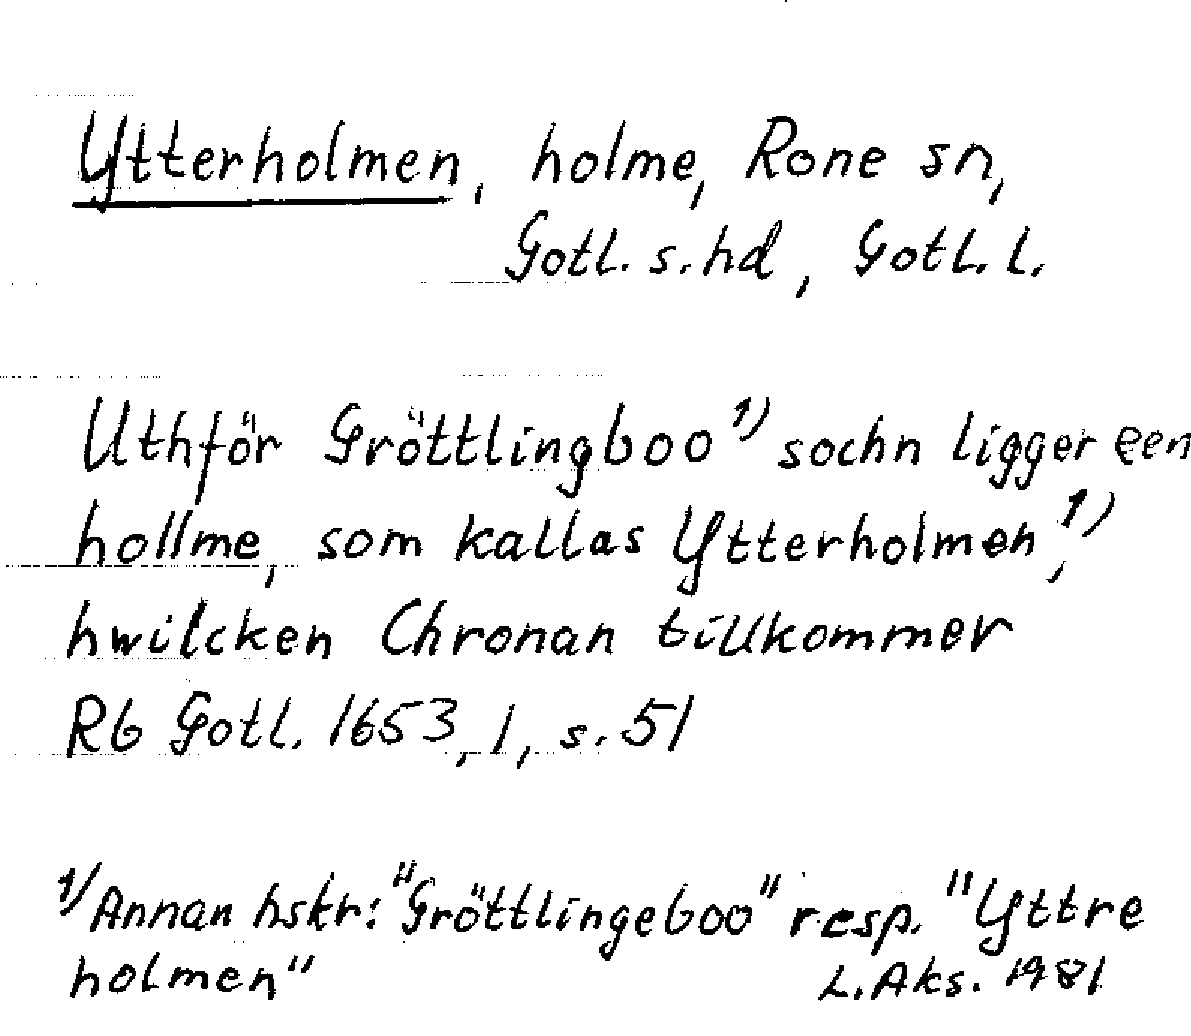 Ytterholmen, holme, Rone sn,
Gotl. s. hd, Gotl. l.
Uthför Gröttlingboo¹⁾ sochn ligger een
hollme, som kallas Ytterholmen,¹⁾
hwilcken Chronan tillkommer
Rb Gotl. 1653, 1, s. 51
¹⁾ Annan hskr: "Gröttlingeboo" resp. "Yttre
holmen"
L. Aks. 1981